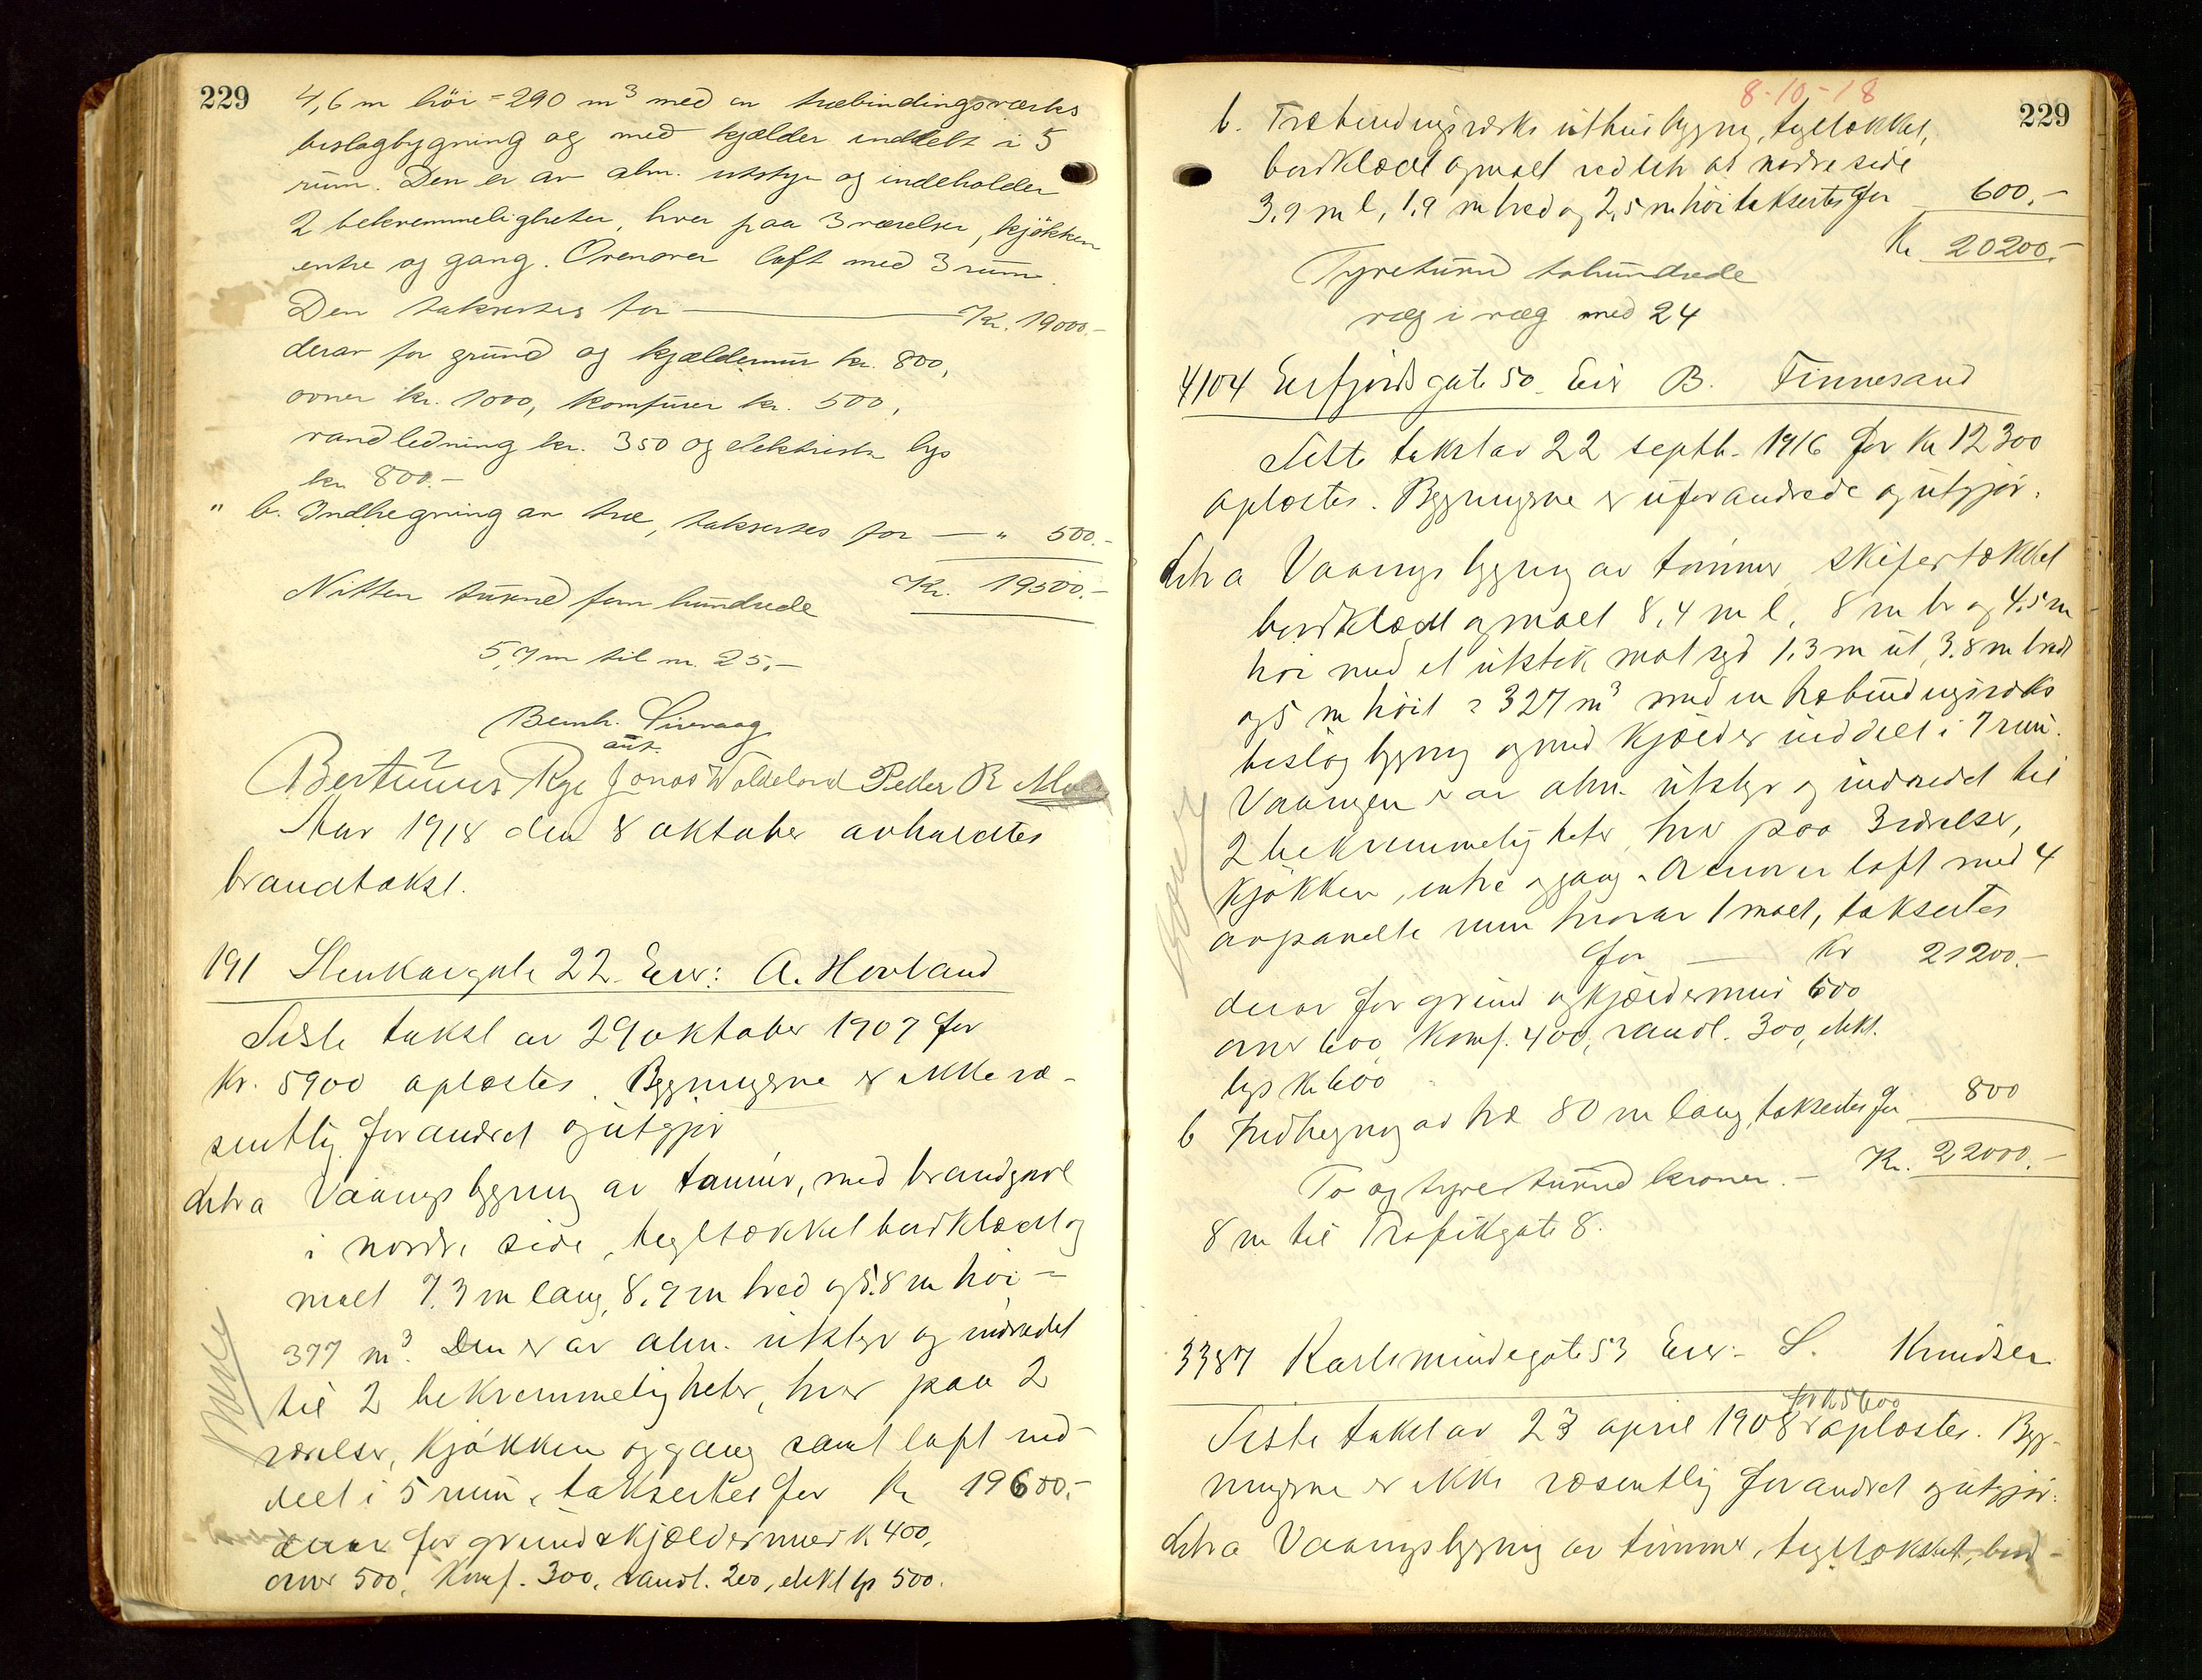 229
4,6 m höi = 290 m³ med en træbindingsverks
beslagbygning og med kjælder inddelt i 5
rum. Den er av alm. utstyr og indeholder
2 bekvemmeligheter, hver paa 3 værelser, kjökken
entre og gang. Ovenover loft med 3 rum.
Den taksertes for — Kr. 19000.-
derav for grund og kjældermur kr. 800,
ovner kr. 1000, komfurer kr. 500,
vandledning kr. 350 og elektrisk lys
kr. 800.-
" b. Indhegning av træ, taksertes for — " 500.-
Kr. 19500.-
Nitten tusund fem hundrede
5,7 m til nr. 25.-
Bernh.
ass.
Bertinius Rye Jonas Waldeland Peder R
Aar 1918 den 8 oktober avholdtes
brandtakst.
191 Stenkargate 22. Eier: A. Hovland
Siste takst av 29 oktober 1907 for
Kr. 5900 oplæstes. Bygningerne er ikke væ-
sentlig forandret og utgjör
Litra a Vaaningsbygning av tømmer, med brandgavl
i nordre side, tegltækket bordklædt og
malt 7,3 m lang, 8,9 m bred og 5.8 m høi =
377 m³. Den er av alm. utstyr og indredet
til 2 bekvemmeligheter, hver paa 2
værelser, kjøkken og gang samt loft ind-
deelt i 5 rum, taksertes for Kr 19600.-
derav for grund & kjældermur K 400,
ovner 500, komf. 300, vandl. 200, elekt lys 500.
8-10-18
229
b. Træbindingsverks uthusbygning, tegltækket,
bordklædt og malt ved litr at nordre side
3.9 m l, 1.9 m bred og 2,5 m höi taksertes for 600.-
Kr 20200.-
Tyvetusind tohundrede
væg i væg med 24
4104 Erfjordsgate 50. Eier B. Finnesand
Siste takst av 22 septb. 1916 for Kr 12300
oplæstes. Bygningerne er uforandrede og utgjör.
Litra a Vaaningsbygning av tömmer skifertækket
bordklædt og malt 8,4 m l, 8 m br og 4.5 m
höi med et utstik mot syd 1.3 m ut, 3.8 m bredt
og 5 m höit = 327 m³ med en træbindingsverks
beslagbygning og med kjælder inddelt i 7 rum.
Vaaningen er av alm. utstyr og indredet til
2 bekvemmeligheter, hver paa 3 værelser,
kjøkken, entre og gang. Ovenover loft med 4
avpanelte rum hvorav 1 malt, taksertes
for — Kr 21200.-
derav for grund og kjældermur 600
ovner 600, komf. 400, vandl. 300, elekt.
lys Kr 600
b Indhegning av træ 80 m lang, taksertes for 800
Kr. 22000.-
To og tyve tusund kroner.-
8 m til Trafikgate 8.
3387 Karlsmindegate 53 Eier:- S. Knudsen
for K 5600
Siste takst av 23 april 1908 oplæstes. Byg-
ningerne er ikke væsentlig forandret og utgjör:
Litra a Vaaningsbygning av tømmer, tegltækket, bord-